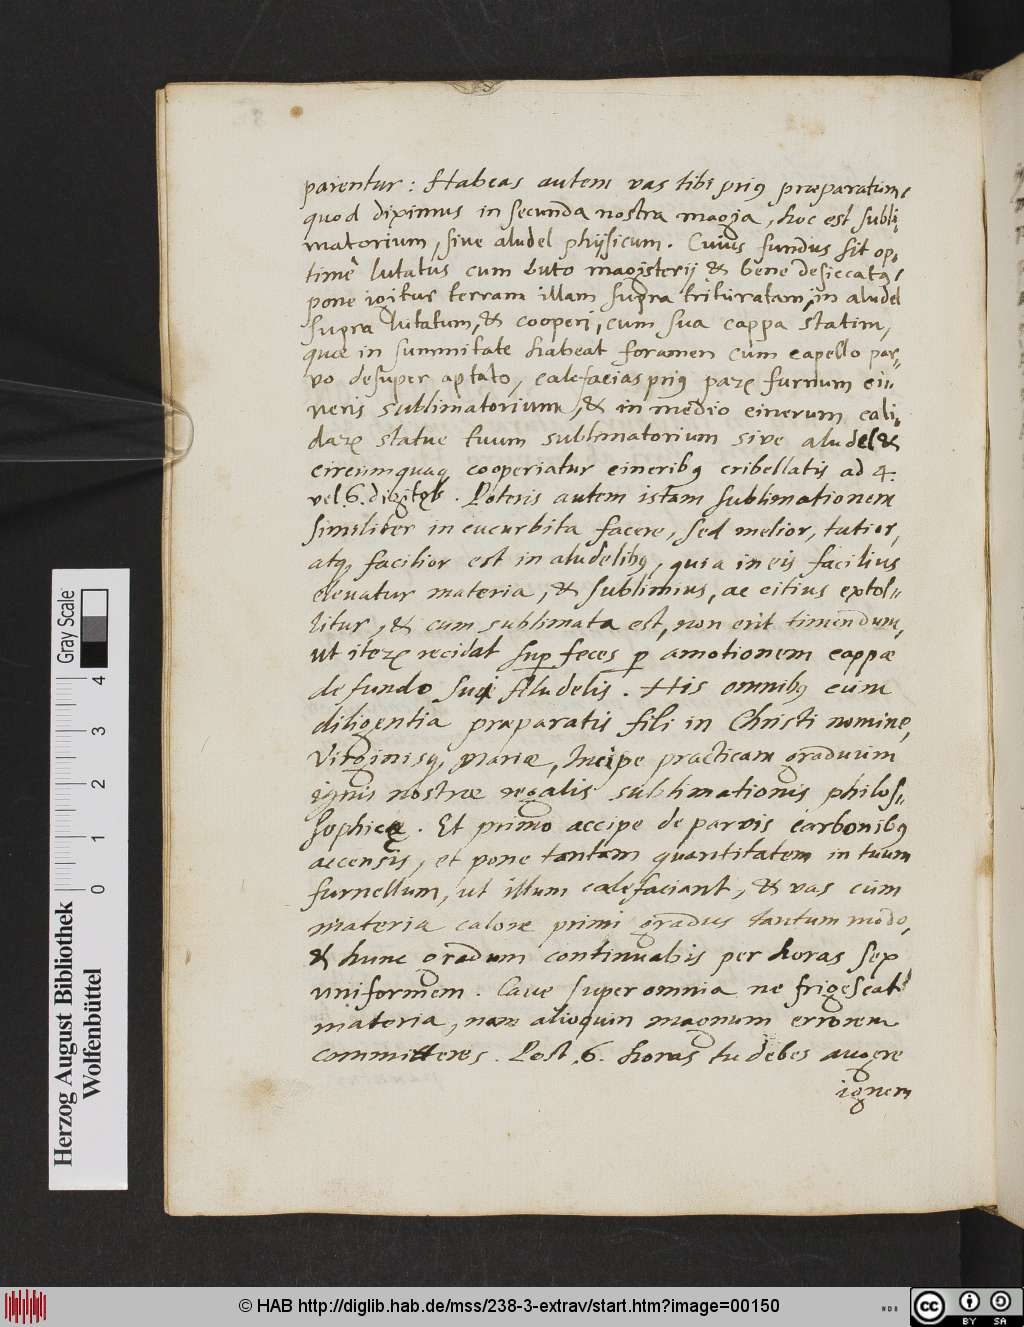 parentur: Habeas autem vas tibi prius præparatum,
quod diximus in secunda nostra magia, hoc est subli,
matorium, sive aludel physicum. Cuius fundus sit op,
timè lutatus cum luto magisterij & bene desiccatus,
pone igitur terram illam supra trituratam, in aludel
supra lutatum, & cooperi, cum sua cappa statim,
quæ in summitate habeat foramen cum capello par„
vo desuper aptato, calefacias prius parꝝ furnum ci„
neris sublimatorium, & in medio cinerum cali„
darꝝ statue tuum sublimatorium sive aludel &
circumquaq cooperiatur cineribꝰ cribellatis ad 4.
vel 6. digitos. Poteris autem istam sublimationem
similiter in cucurbita facere, sed melior, tutior,
atq, facilior est in aludelibꝰ, quia in eis facilius
elevatur materia, & sublimius, ac citius extol„
litur, & cum sublimata est, non erit timendum,
ut iterꝝ recidat suꝑ feces ꝑ amotionem cappæ
de fundo sui Aludelis. His omnibꝰ cum
diligentia præparatis fili in Christi nomine,
Virginisq, Mariæ, Incipe practicam graduum
ignis nostræ regalis sublimationis philos„
sophicæ. Et primo accipe de parvis carbonibꝰ
accensis, et pone tantam quantitatem in tuum
furnellum, ut illum calefaciant, & vas cum
materia calore primi gradus tantum modo,
& hunc gradum continuabis per horas sex
uniformem. Cave super omnia ne frigescat
materia, nam alioquin magnum errorem
committeres. Post .6. horas tu debes augere
ignem
Herzog August Bibliothek
Wolfenbüttel
0 1 2 3 4
Gray Scale
© HAB http://diglib.hab.de/mss/238-3-extrav/start.htm?image=00150
NDB
cc BY SA